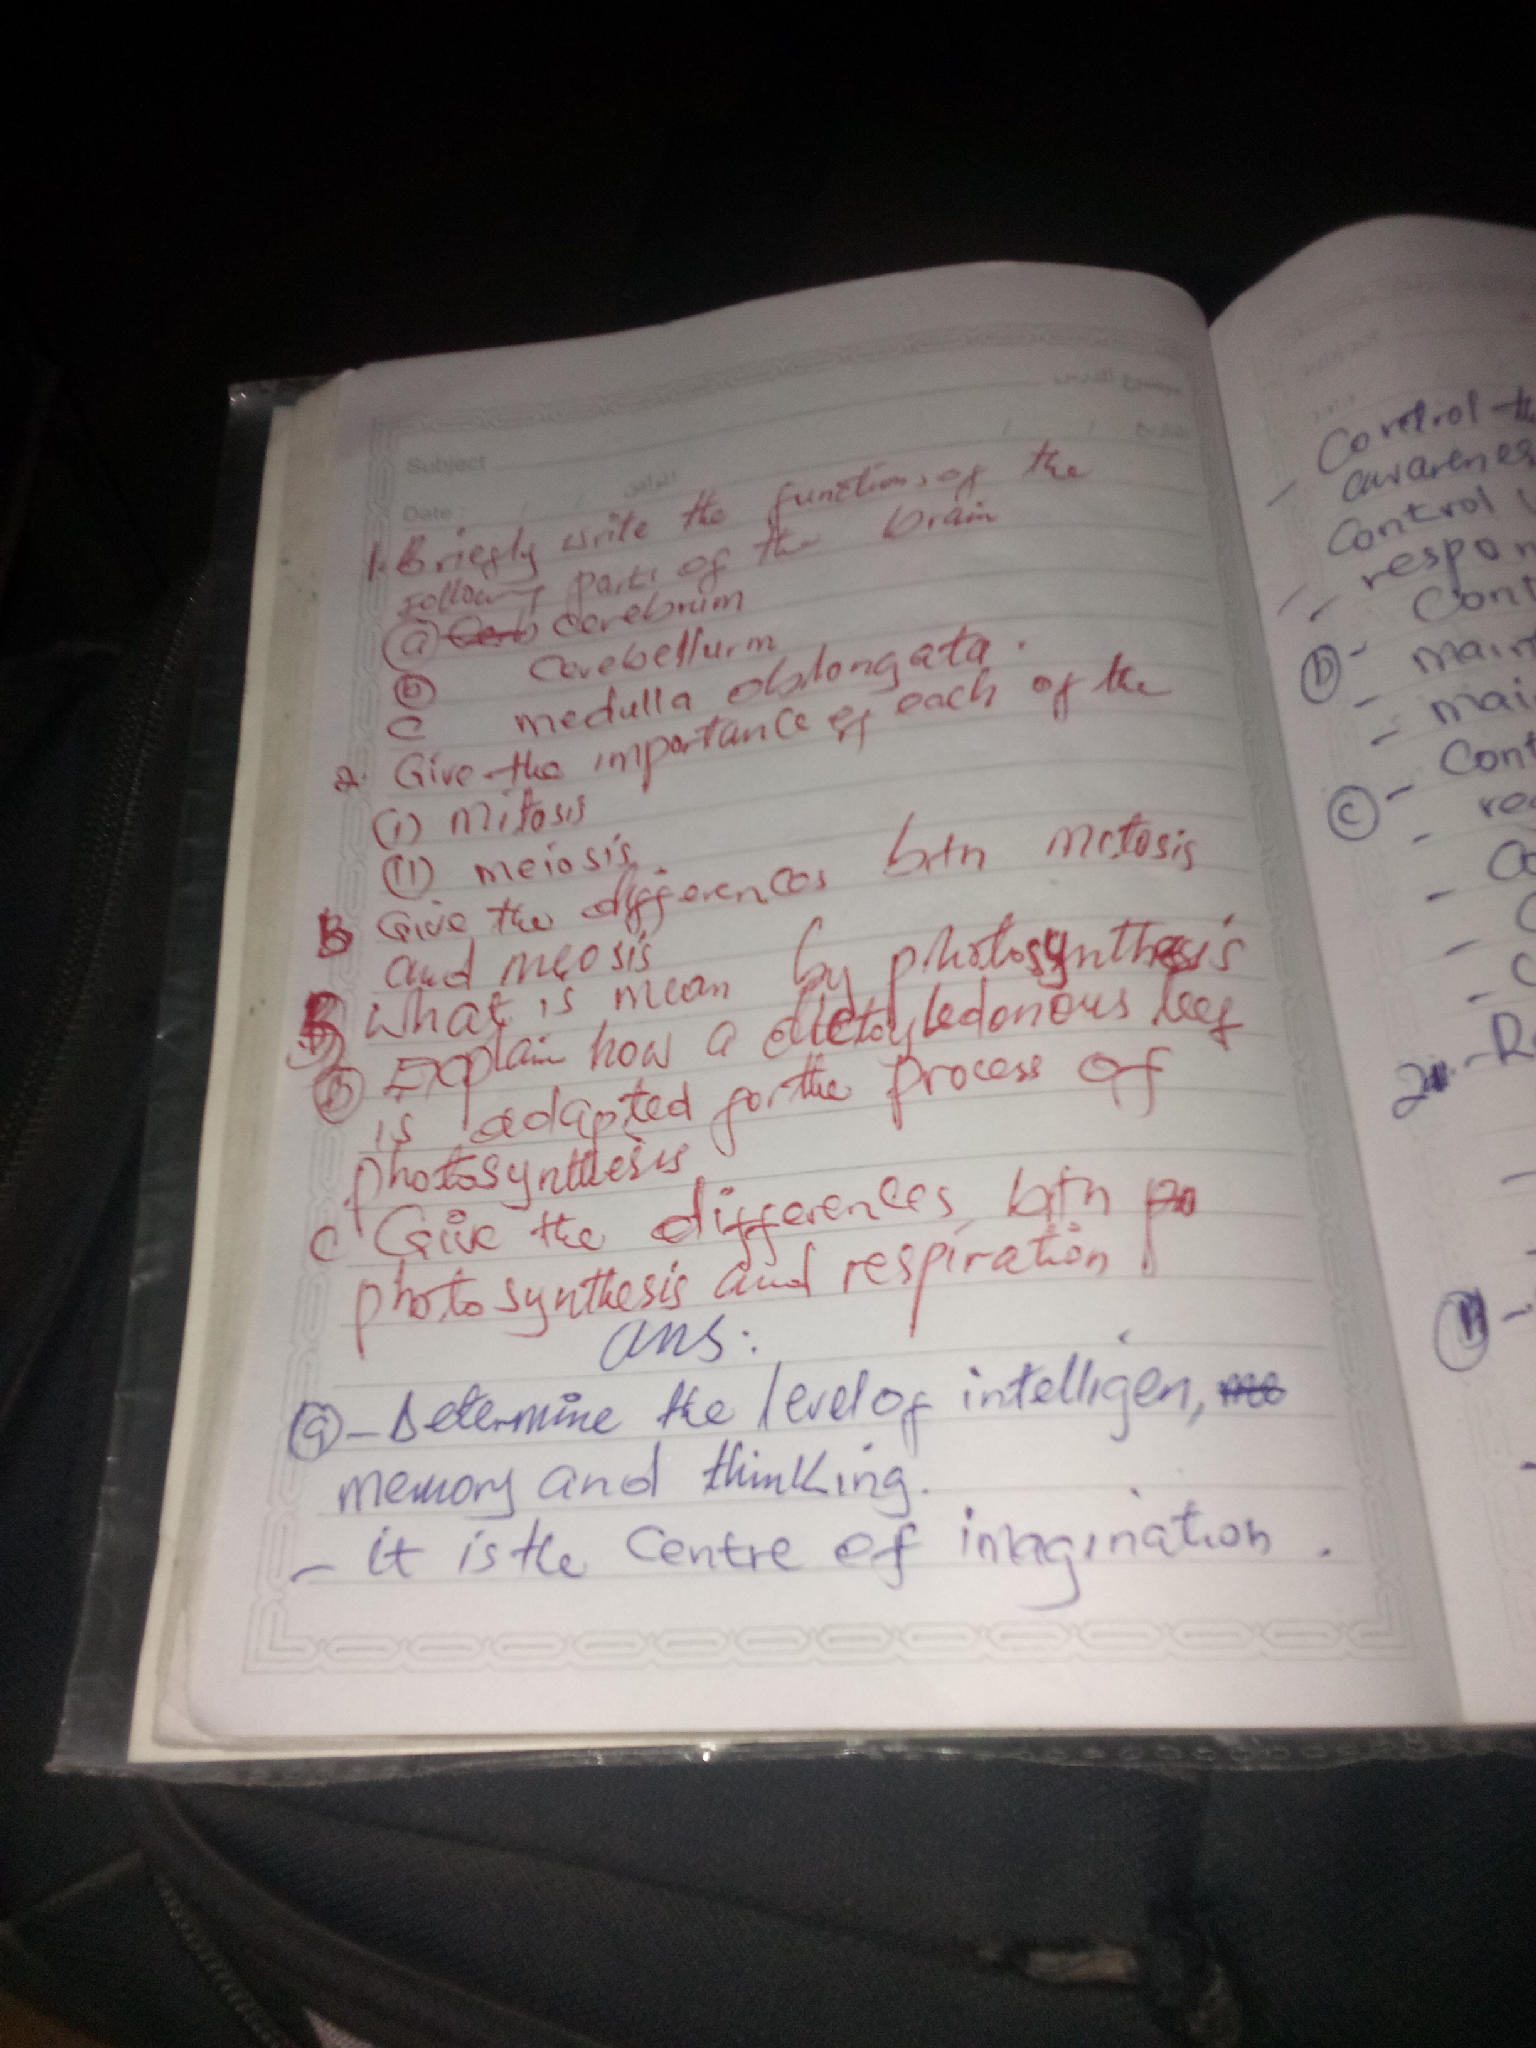 Subject
Date:
1. Briefly write the functions of the
following parts of the brain
(a) cerebrum
(b) cerebellurm
C medulla oblongata.
2. Give the importance of each of the
(i) mitosis
(ii) meiosis
B Give the differences btn mitosis
and meosis
What is mean by photosynthesis
(b) Explain how a dictoyledonous leef
is adapted for the process of
photosynthesis
C Give the differences btn
photosynthesis and respiration
ans:
(a) - Determine the level of intelligen,
memory and thinking.
- it is the centre of imagination.
Control
awarenes
Control
respon
Cont
(b) - main
- mai
- Cont
(c) -
2